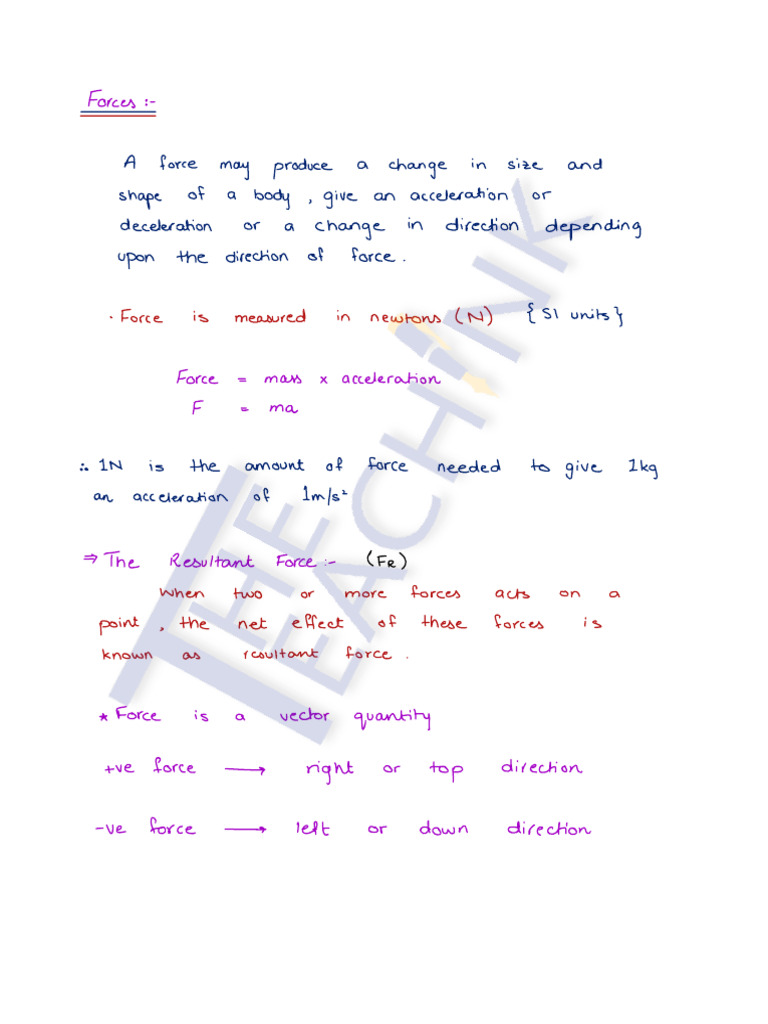 Forces :-
A force may produce a change in size and
shape of a body , give an acceleration or
deceleration or a change in direction depending
upon the direction of force .
· Force is measured in newtons (N) {SI units}
Force = mass x acceleration
F = ma
∴ 1N is the amount of force needed to give 1kg
an acceleration of 1m/s²
⇒ The Resultant Force :- (FR)
When two or more forces acts on a
point , the net effect of these forces is
known as resultant force .
* Force is a vector quantity
+ve force ⟶ right or top direction
-ve force ⟶ left or down direction
THE TEACHINK